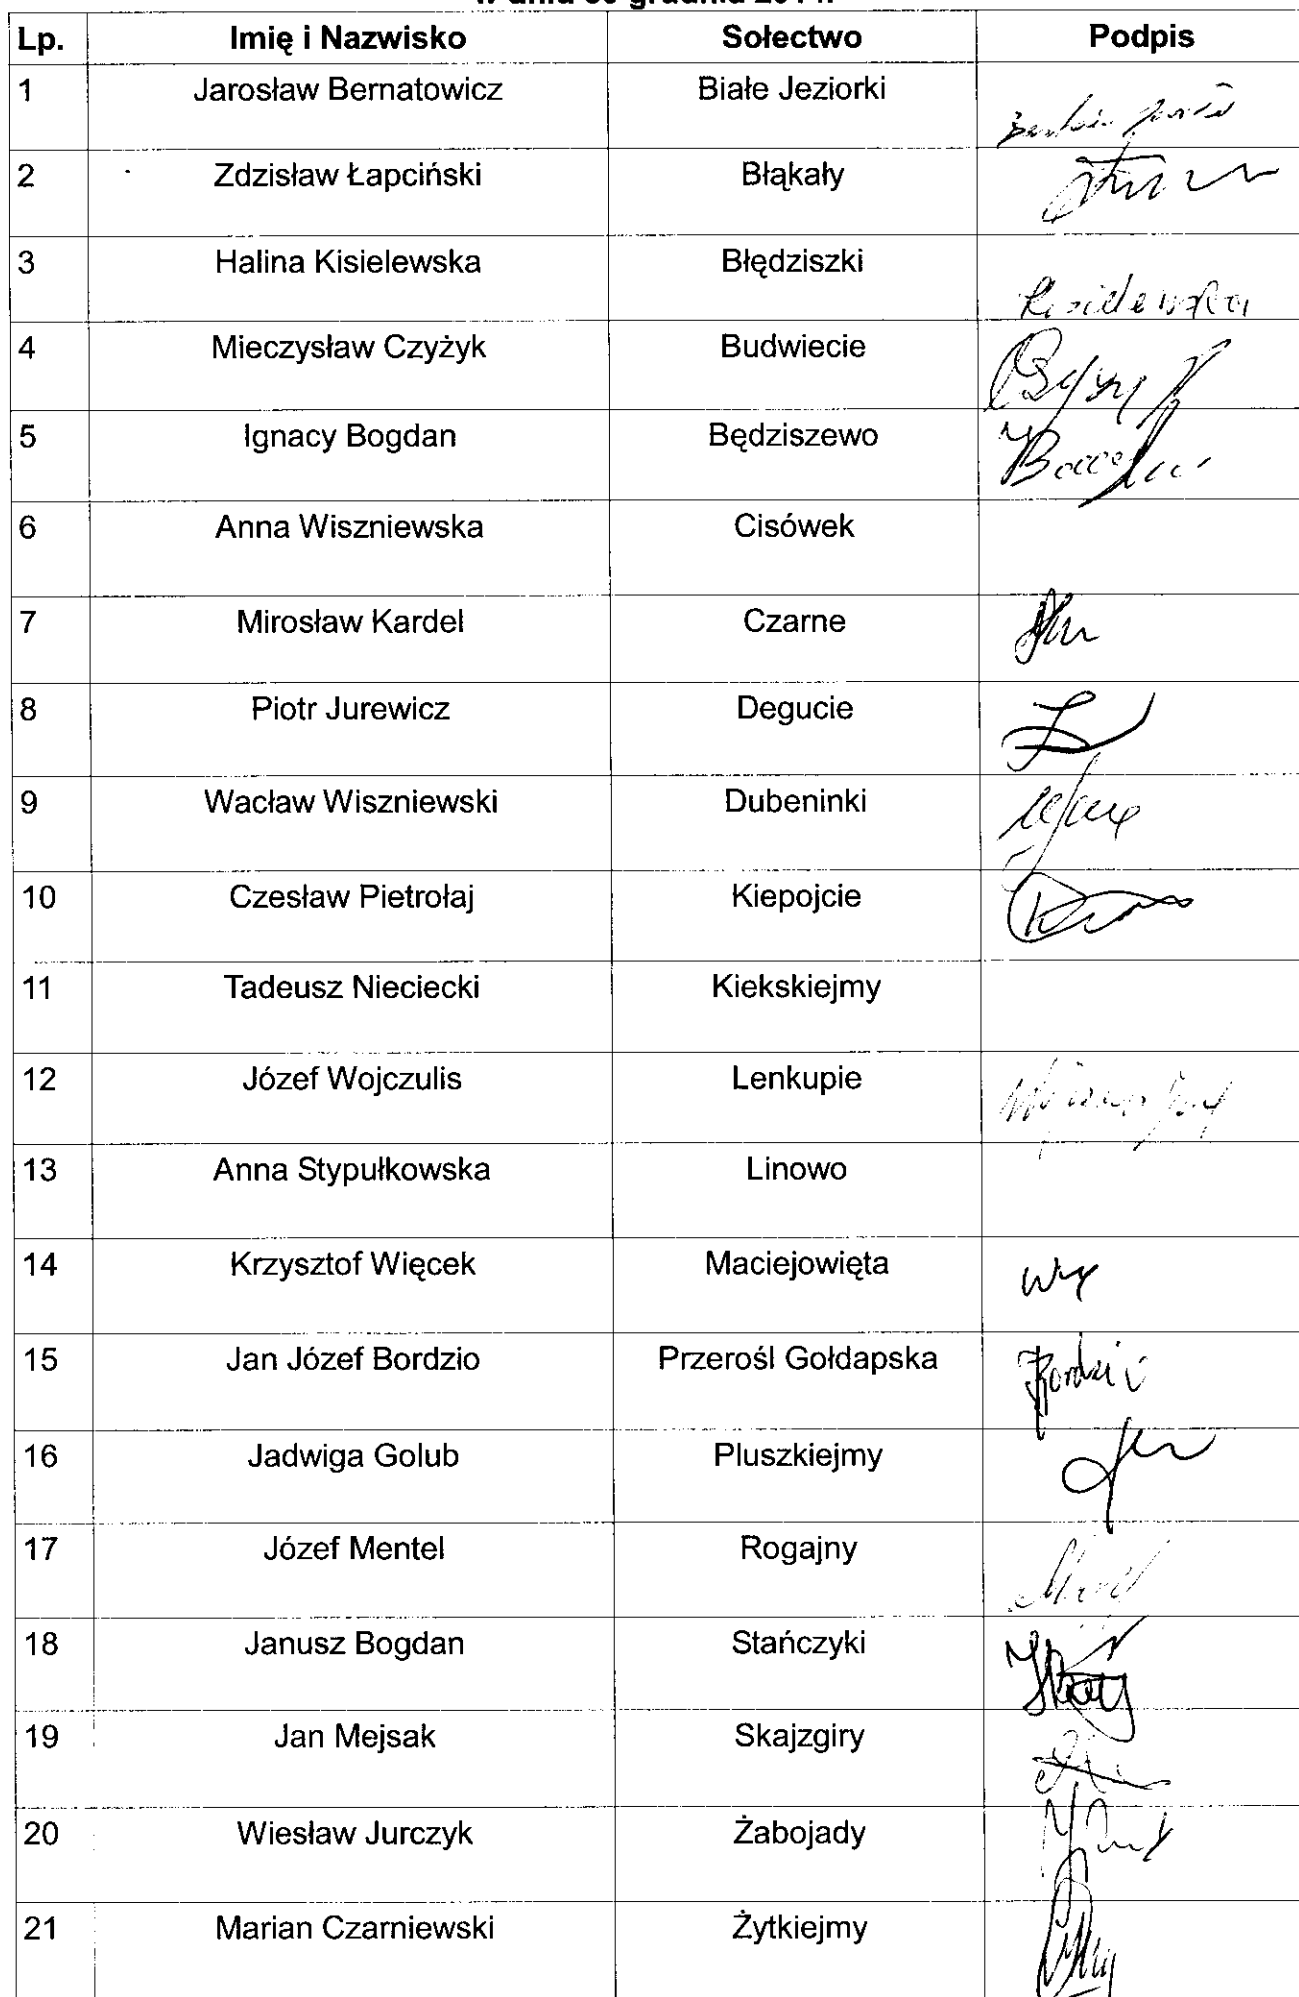 w dniu 30 grudnia 2014r.
Lp. Imię i Nazwisko Sołectwo Podpis
1 Jarosław Bernatowicz Białe Jeziorki
2 Zdzisław Łapciński Błąkały
3 Halina Kisielewska Błędziszki Kisielewska
4 Mieczysław Czyżyk Budwiecie
5 Ignacy Bogdan Będziszewo
6 Anna Wiszniewska Cisówek
7 Mirosław Kardel Czarne
8 Piotr Jurewicz Degucie
9 Wacław Wiszniewski Dubeninki
10 Czesław Pietrołaj Kiepojcie
11 Tadeusz Nieciecki Kiekskiejmy
12 Józef Wojczulis Lenkupie
13 Anna Stypułkowska Linowo
14 Krzysztof Więcek Maciejowięta
15 Jan Józef Bordzio Przerośl Gołdapska Bordzio
16 Jadwiga Golub Pluszkiejmy
17 Józef Mentel Rogajny
18 Janusz Bogdan Stańczyki
19 Jan Mejsak Skajzgiry
20 Wiesław Jurczyk Żabojady
21 Marian Czarniewski Żytkiejmy